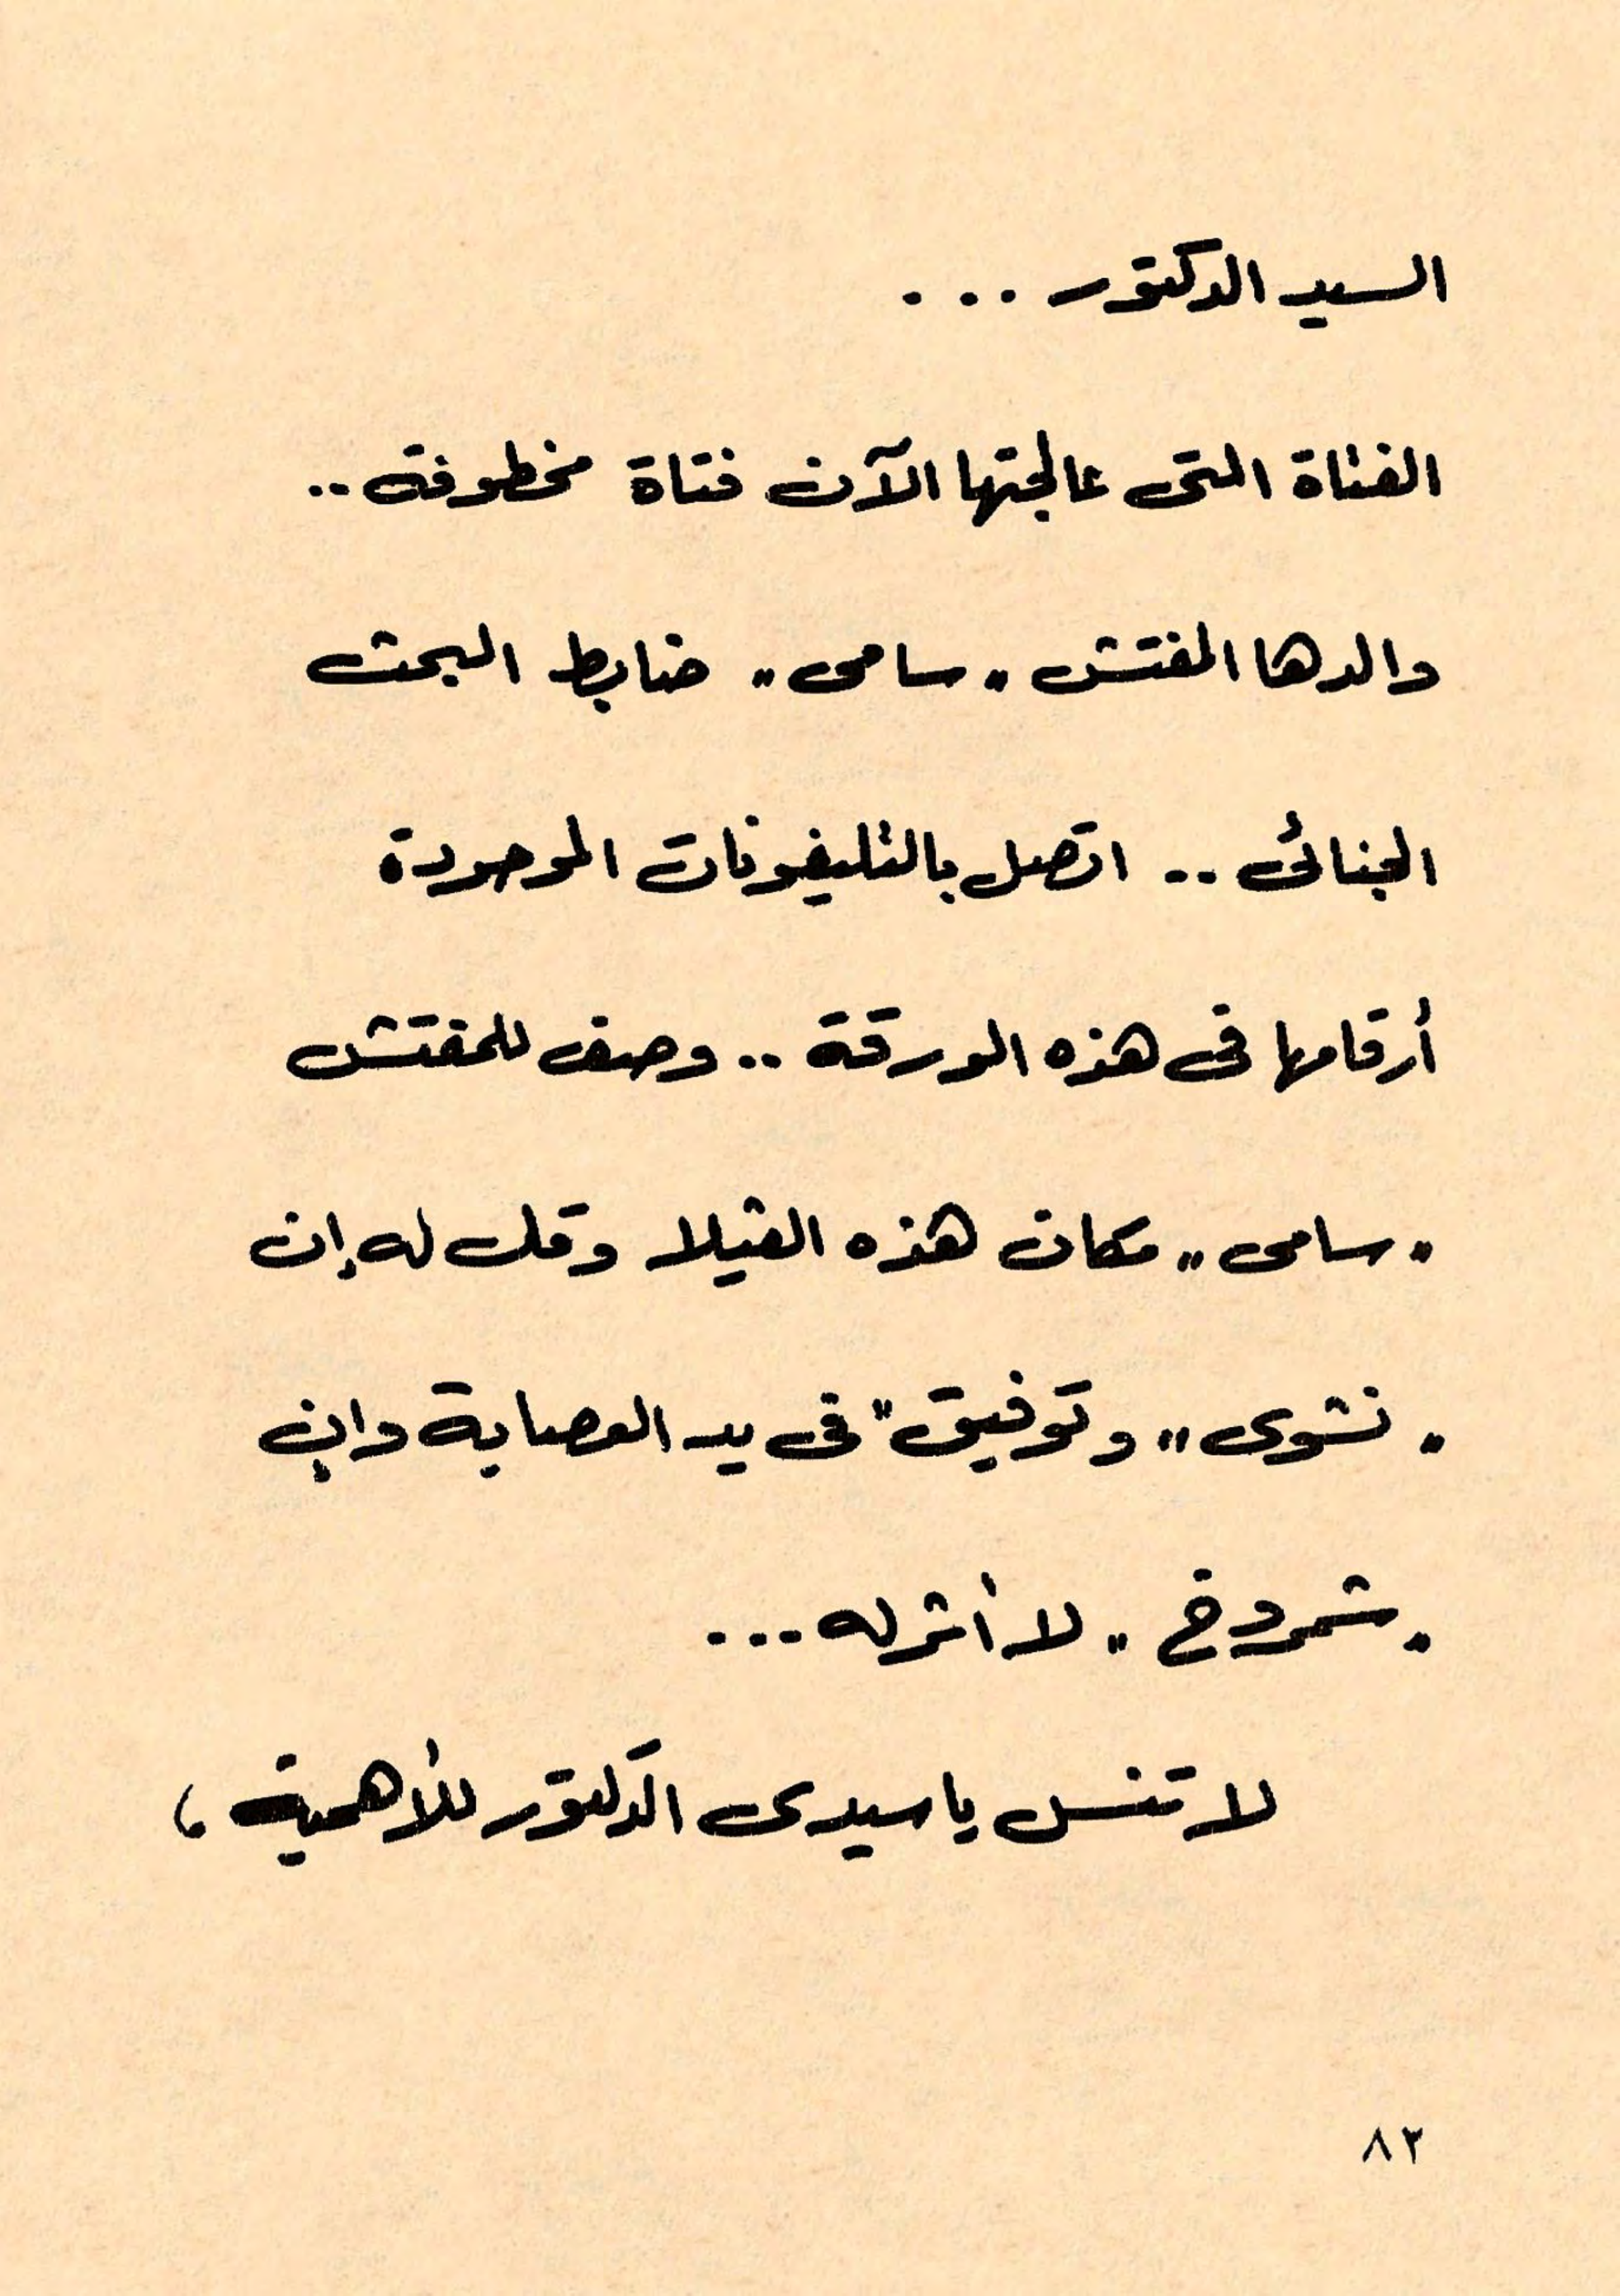 السيد الدكتور ...
الفتاة التى عالجتها الآن فتاة مخطوفة ..
والدها المفتش "سامى" ضابط البحث
الجنائى .. اتصل بالتليفونات الموجودة
أرقامها فى هذه الورقة .. وصف للمفتش
"سامى" مكان هذه الفيلا وقل له إن
"نشوى" وتوفيق" فى يد العصابة وإن
"شمروخ" لا أثر له ...
لا تنس ياسيدى الدكتور للأهمية ،
٨٢